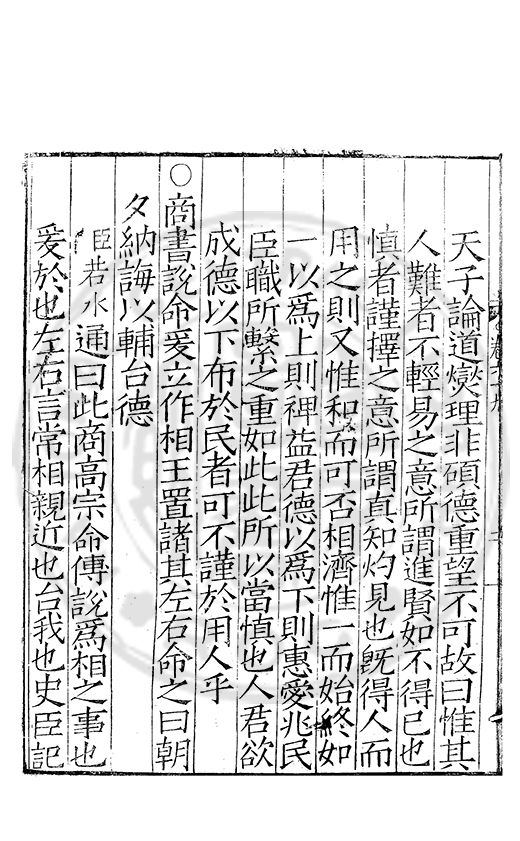 天子論道燮理非碩德重望不可故曰惟其
人難者不輕易之意所謂進賢如不得已也
慎者謹擇之意所謂真知灼見也旣得人而
用之則又惟和而可否相濟惟一而始終如
一以爲上則裨益君德以爲下則惠愛兆民
臣職所繫之重如此此所以當慎也人君欲
成德以下布於民者可不謹於用人乎
○商書說命爰立作相王置諸其左右命之曰朝
夕納誨以輔台德
臣若水通曰此商高宗命傳說爲相之事也
爰於也左右言常相親近也台我也史臣記